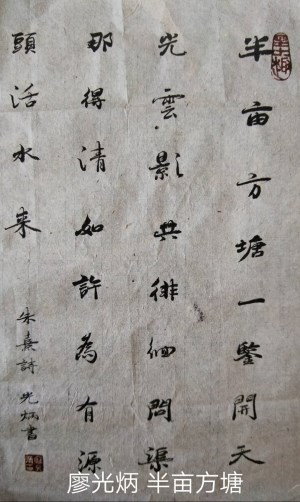 半亩方塘一鑒開天
光雲影共徘徊問渠
那得清如許為有源
頭活水来
朱熹詩 光炳書
廖光炳 半亩方塘